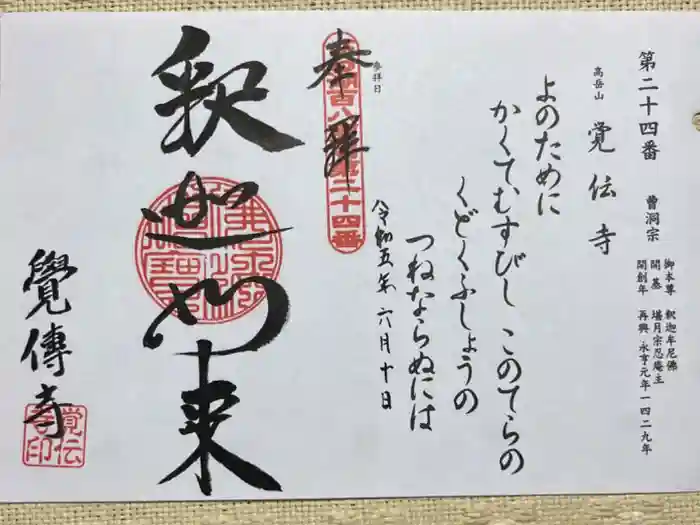 第二十四番
曹洞宗
御本尊 釈迦牟尼佛
開基 堪月宗忍庵主
開創年 再興・永亨元年一四二九年
高岳山 覚伝寺
よのために
かくてむすびし このてらの
くどくふしょうの
つねならぬには
参拝日
令和五年 六月十日
奉拝
釈迦如来
覺傳寺
覚伝寺印